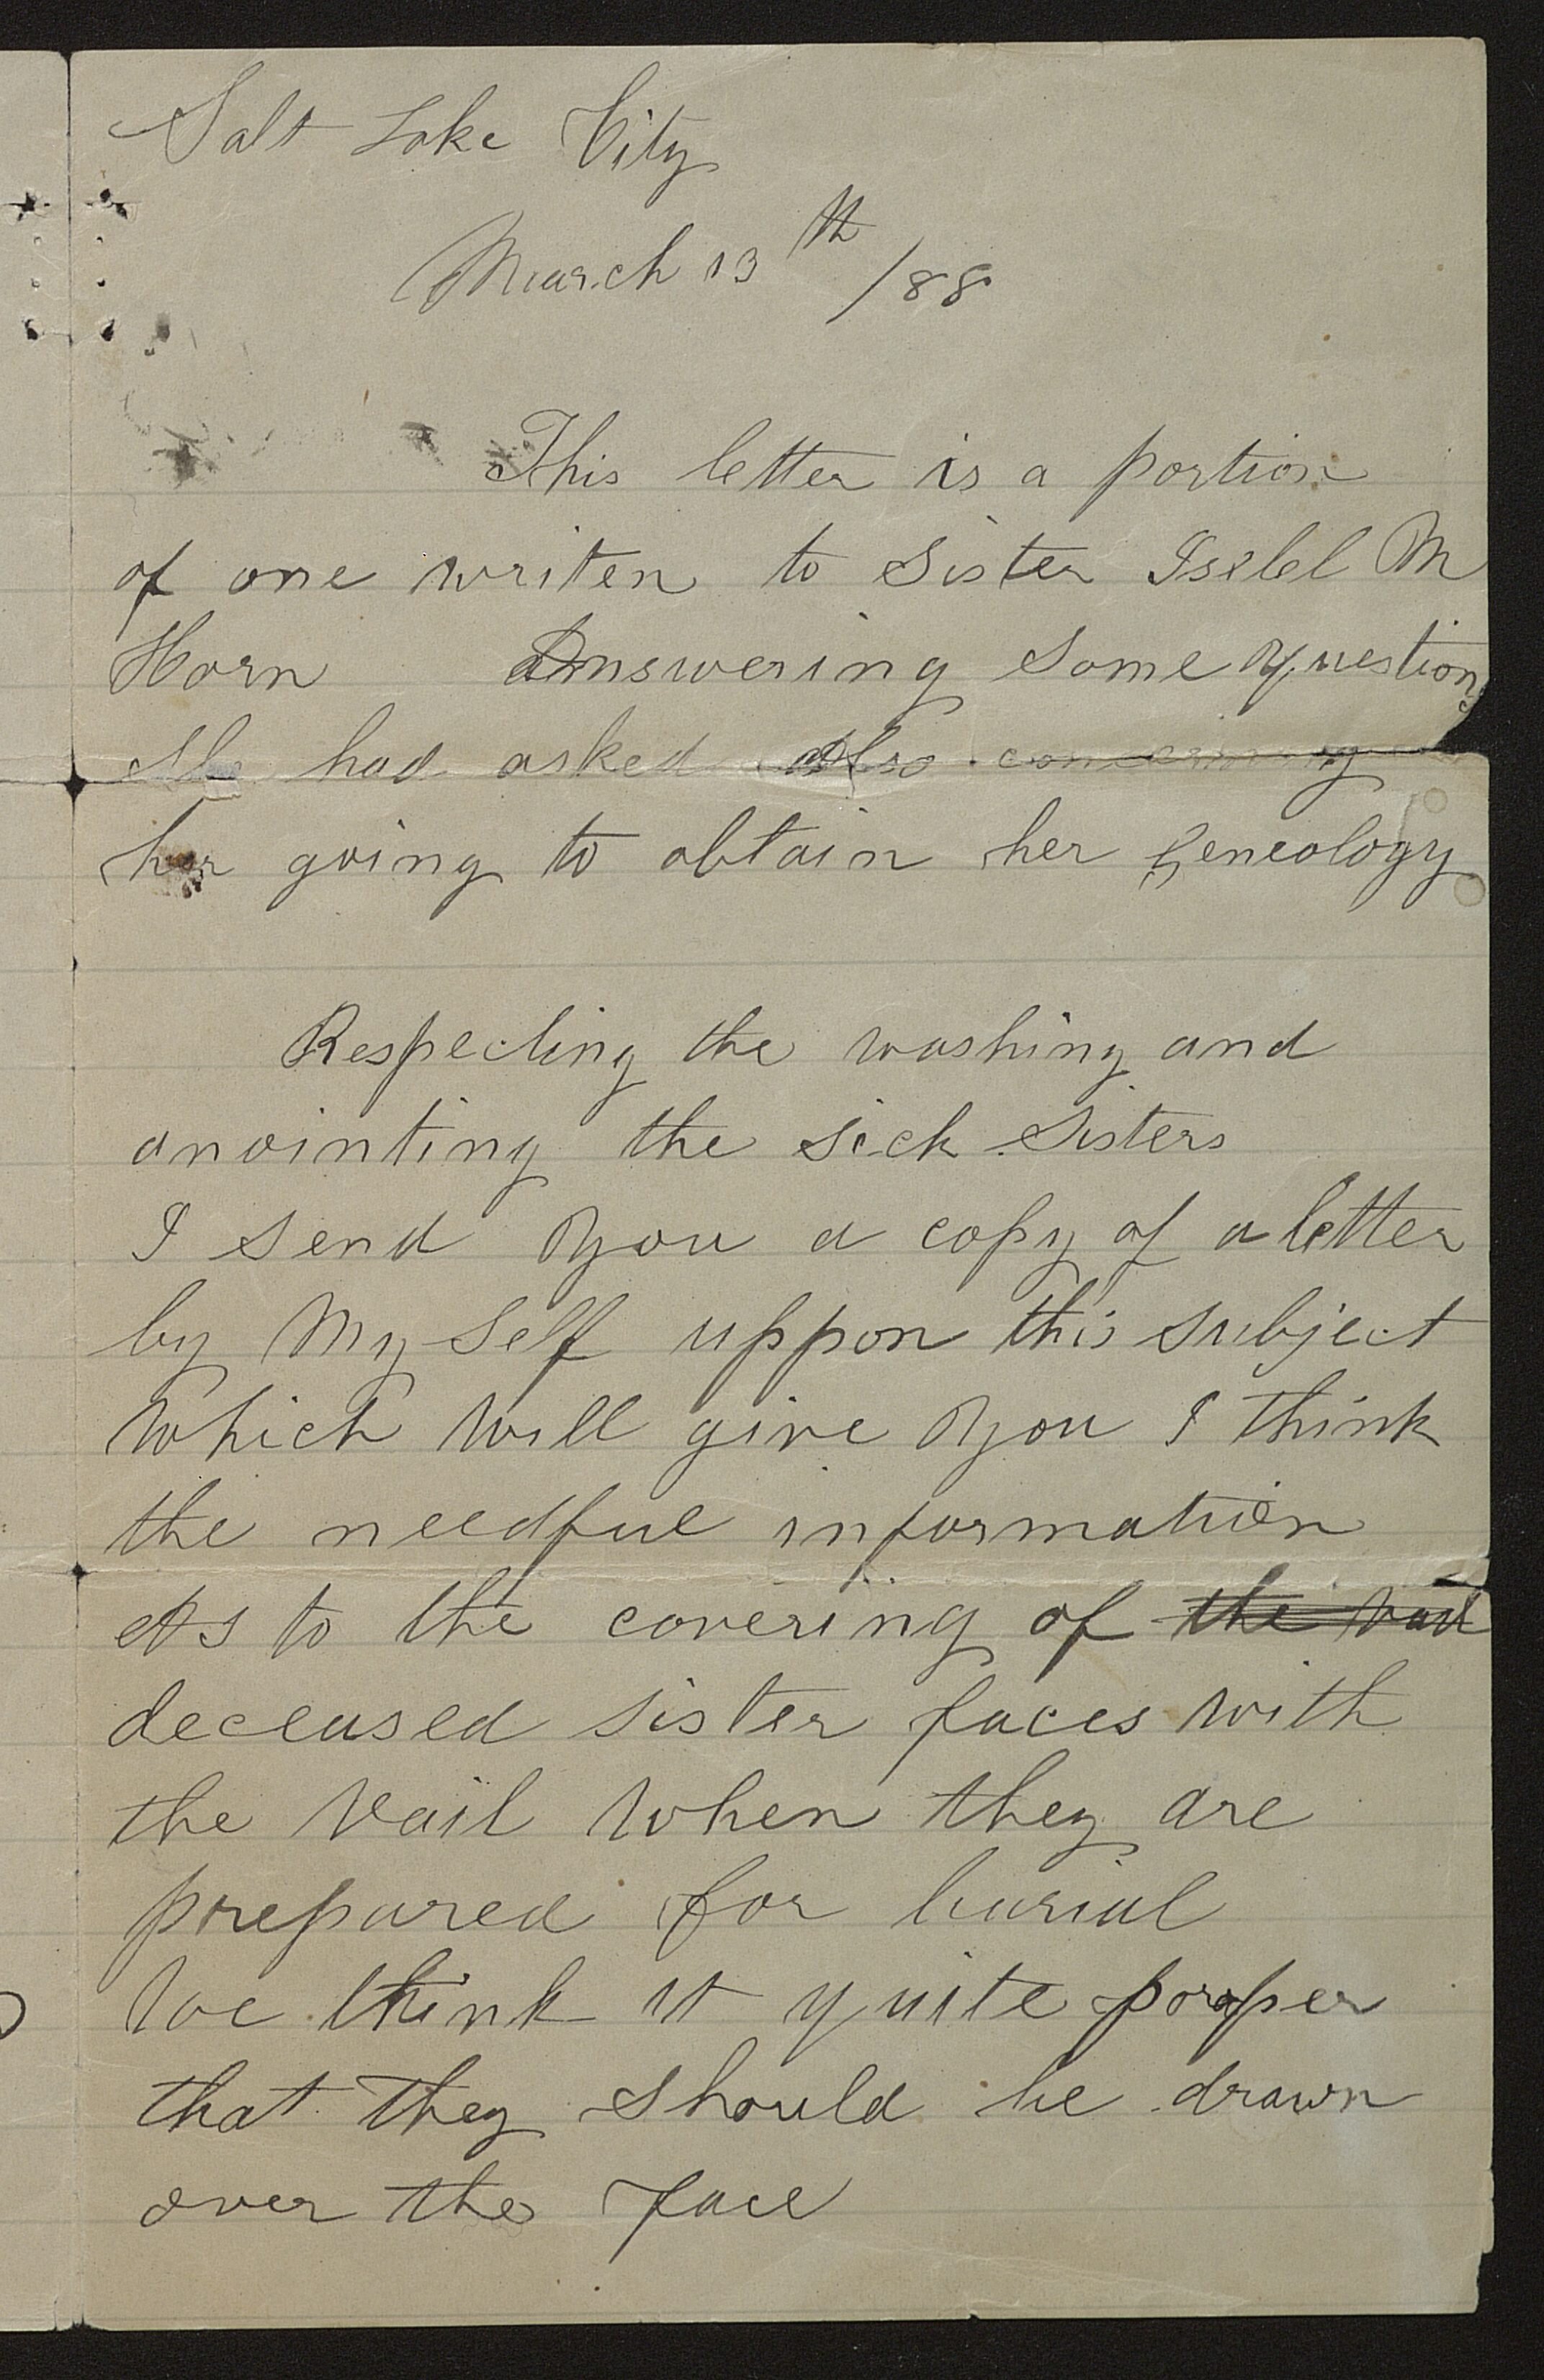 Salt Lake City
March 13th /88
This letter is a portion
of one writen to Sister Isebel M
Horn Answering some question
She had asked also concerning
her going to obtain her Geneology
Respecting the washing and
anointing the sick Sisters
I send you a copy of a letter
by My Self uppon this subject
which will give you I think
the needful information
As to the covering of the vail
deceased sister faces with
the vail when they are
prepared for burial
We think it quite proper
that they should be drawn
over the face